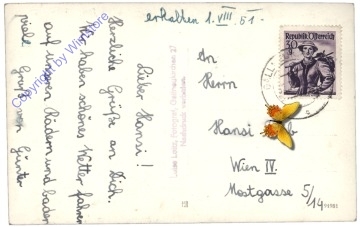 erhalten 1. VIII. 51 -
Lieber Hansi!
Herzliche Grüße an Dich.
Wir haben schönes Wetter fahren
auf unseren Rädern und baden
viel Grüße von Günter
Republik Österreich
30
An
Herrn
Hansi
Wien IV.
Mostgasse 5/14
Copyright by Wimstore